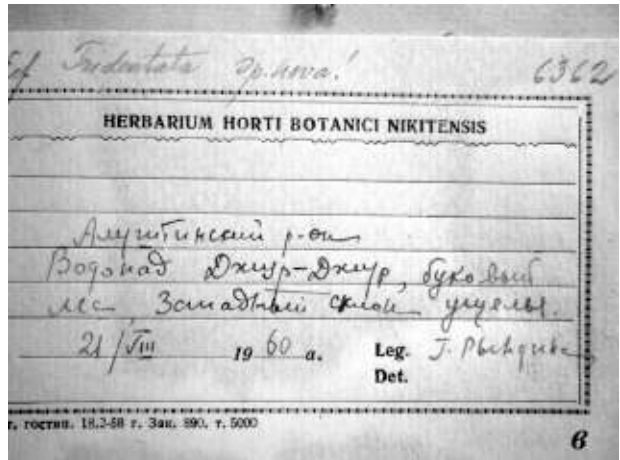 Tridentata sp. nova! 6362
HERBARIUM HORTI BOTANICI NIKITENSIS
Алуштинский р-он
Водопад Джур-Джур, буковый
лес, Западный склон ущелья.
21/VIII 1960 a. Leg.
Det.
г. гостип. 18.2-58 г. Зак. 890. т. 5000
в